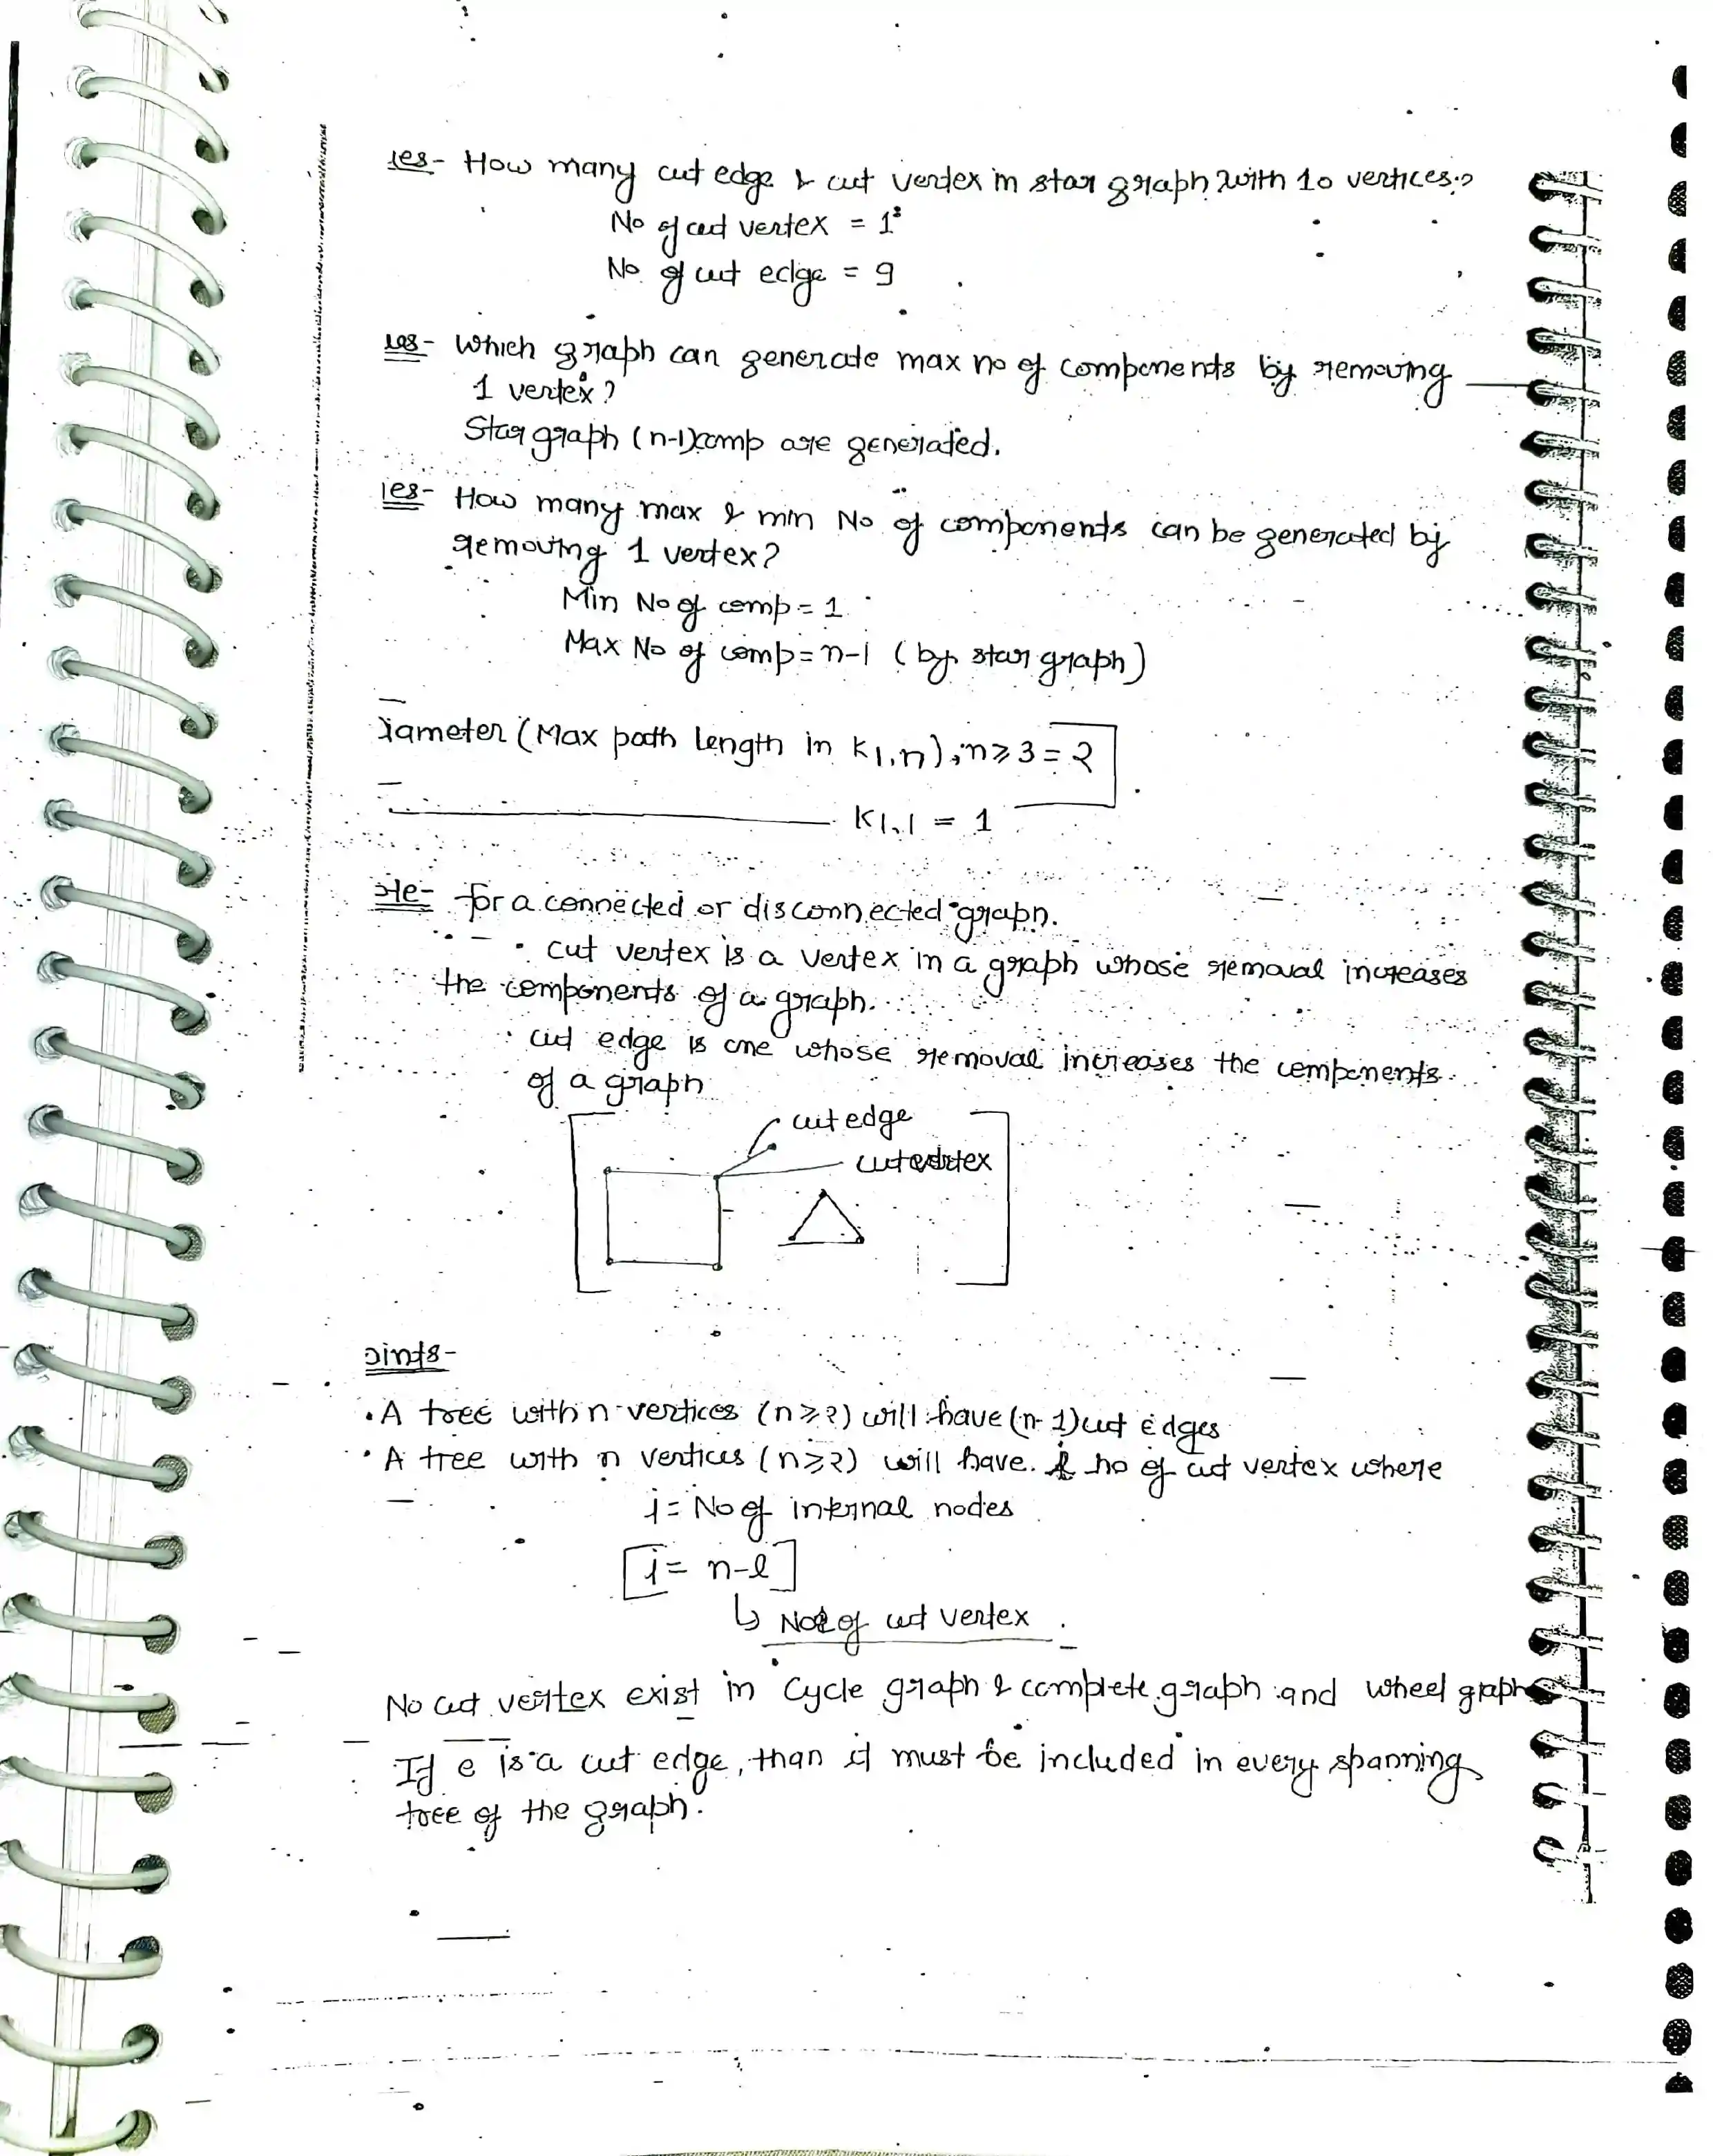 ies- How many cut edge & cut vertex in star graph with 10 vertices?
No of cut vertex = 1
No of cut edge = 9
ies- Which graph can generate max no of components by removing
1 vertex?
Star graph (n-1)comp are generated.
ies- How many max & min No of components can be generated by
removing 1 vertex?
Min No of comp = 1
Max No of comp = n-1 (by star graph)
iameter (Max path length in K1,n), n≥3 = 2
K1,1 = 1
te- for a connected or disconnected graph.
• cut vertex is a vertex in a graph whose removal increases
the components of a graph.
• cut edge is one whose removal increases the components
of a graph
cut edge
cut vertex
oints-
• A tree with n vertices (n≥2) will have (n-1) cut edges
• A tree with n vertices (n≥2) will have i no of cut vertex where
i = No of internal nodes
[i = n-l]
↳ No of cut vertex
No cut vertex exist in cycle graph & complete graph and wheel graph
If e is a cut edge, than it must be included in every spanning
tree of the graph.